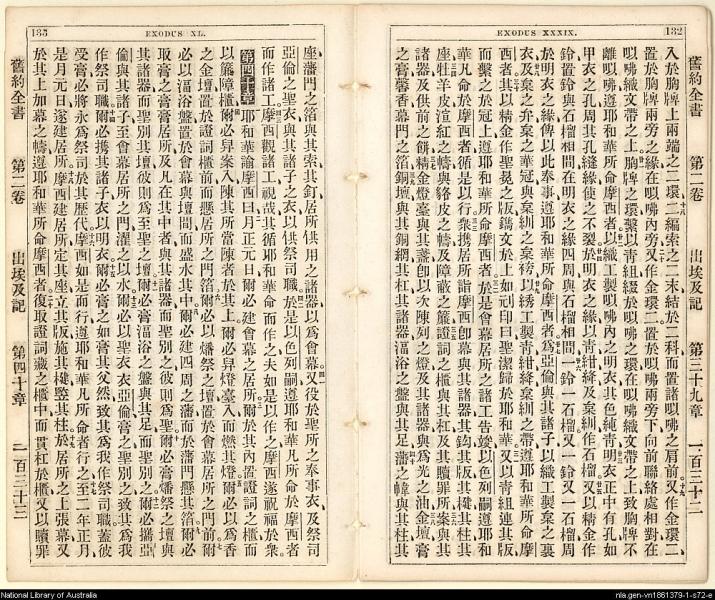 EXODUS XXXIX.
132
舊約全書 第二卷 出埃及記 第三十九章 一百三十二
入於胸牌上兩端之二環二編索之二末結於二科而置諸㕽咈之肩前又作金環二
置於胸牌兩旁之緣在㕽咈內旁又作金環二置於㕽咈兩旁下向前聯絡處相對在
㕽咈織文帶之上胸牌之環繫以靑組綴於㕽咈之環在㕽咈織文帶之上致胸牌不
離㕽咈遵耶和華所命摩西者以織工製㕽咈內之明衣其色純靑明衣正中有孔如
甲衣之孔周其孔縫緣使之不裂於明衣之緣以靑紺絳及枲紃作石榴又以精金作
鈴置鈴與石榴相間在明衣之緣四周與石榴相間一鈴一石榴又一鈴又一石榴周
於明衣之緣俾以此奉事遵耶和華所命摩西者爲亞倫與其諸子以織工製枲之裏
衣及枲之弁枲之華冠與枲紃之枲袴以綉工製靑紺絳枲紃之帶遵耶和華所命摩
西者其以精金作聖冕之版鐫文於上如刓印曰聖潔歸於耶和華又以靑組連其版
而繫之於冠上遵耶和華所命摩西者於是會幕居所之諸工告竣以色列嗣遵耶和
華凡命於摩西者循是以行衆携居所詣摩西卽幕與其諸器其鈎其版其楗其柱其
座牡羊皮渲紅之幬與貉皮之幬及障蔽之簾證詞之櫃與其杠及其贖罪所案與其
諸器及供前之餅精金燈臺與其盞卽以次陳列之燈及其諸器與爲光之油金壇膏
之膏馨香幕門之箔銅壇與其銅網其杠其諸器湢浴之盤與其座藩之幃與其柱其
EXODUS XL.
座藩門之箔與其索其釘居所供用之諸器以爲會幕又役於聖所之奉事衣及祭司
亞倫之聖衣與其諸子之衣以供祭司職於是以色列嗣遵耶和華凡所命於摩西者
而作諸工摩西觀諸工視哉其循耶和華命而作之夫如是以作之摩西遂祝福於衆
第四十章 耶和華諭摩西曰月正元日爾必建會幕之居所於其內置證詞之櫃而
以簾障櫃爾必舁案入陳其所當陳者於其上爾必舁燈臺入而燃其燈爾必以爲香
之金壇置於證詞櫃前而懸居所門之箔爾必以燔祭之壇置於會幕居所之門前爾
必以湢浴盤置於會幕與壇間而盛水其中爾必建四周之藩而於藩門懸其箔爾必
取膏之膏而膏居所及凡在其中者與其諸器而聖別之彼則爲聖爾必膏燔祭之壇與
其諸器而聖別其壇彼則爲至聖之壇爾必膏湢浴之盤與其足而聖別之爾必攜亞
倫與其諸子至會幕居所之門濯之以水爾必以聖衣衣亞倫膏之聖別之致其爲我
作祭司職爾必携其諸子衣以明衣爾必膏之如膏其父然致其爲我作祭司職蓋彼
受膏必將永爲祭司於其歷代摩西如是而行遵耶和華凡所命者行之至二年正月
是月元日遂建居所摩西建居所定其座立其版施其楗竪其柱於居所之上張幕又
於其上加幕之幬遵耶和華所命摩西者復取證詞藏之櫃中而貫杠於櫃又以贖罪
舊約全書 第二卷 出埃及記 第四十章 一百三十三
National Library of Australia
nla.gen-vn1861379-1-s72-e